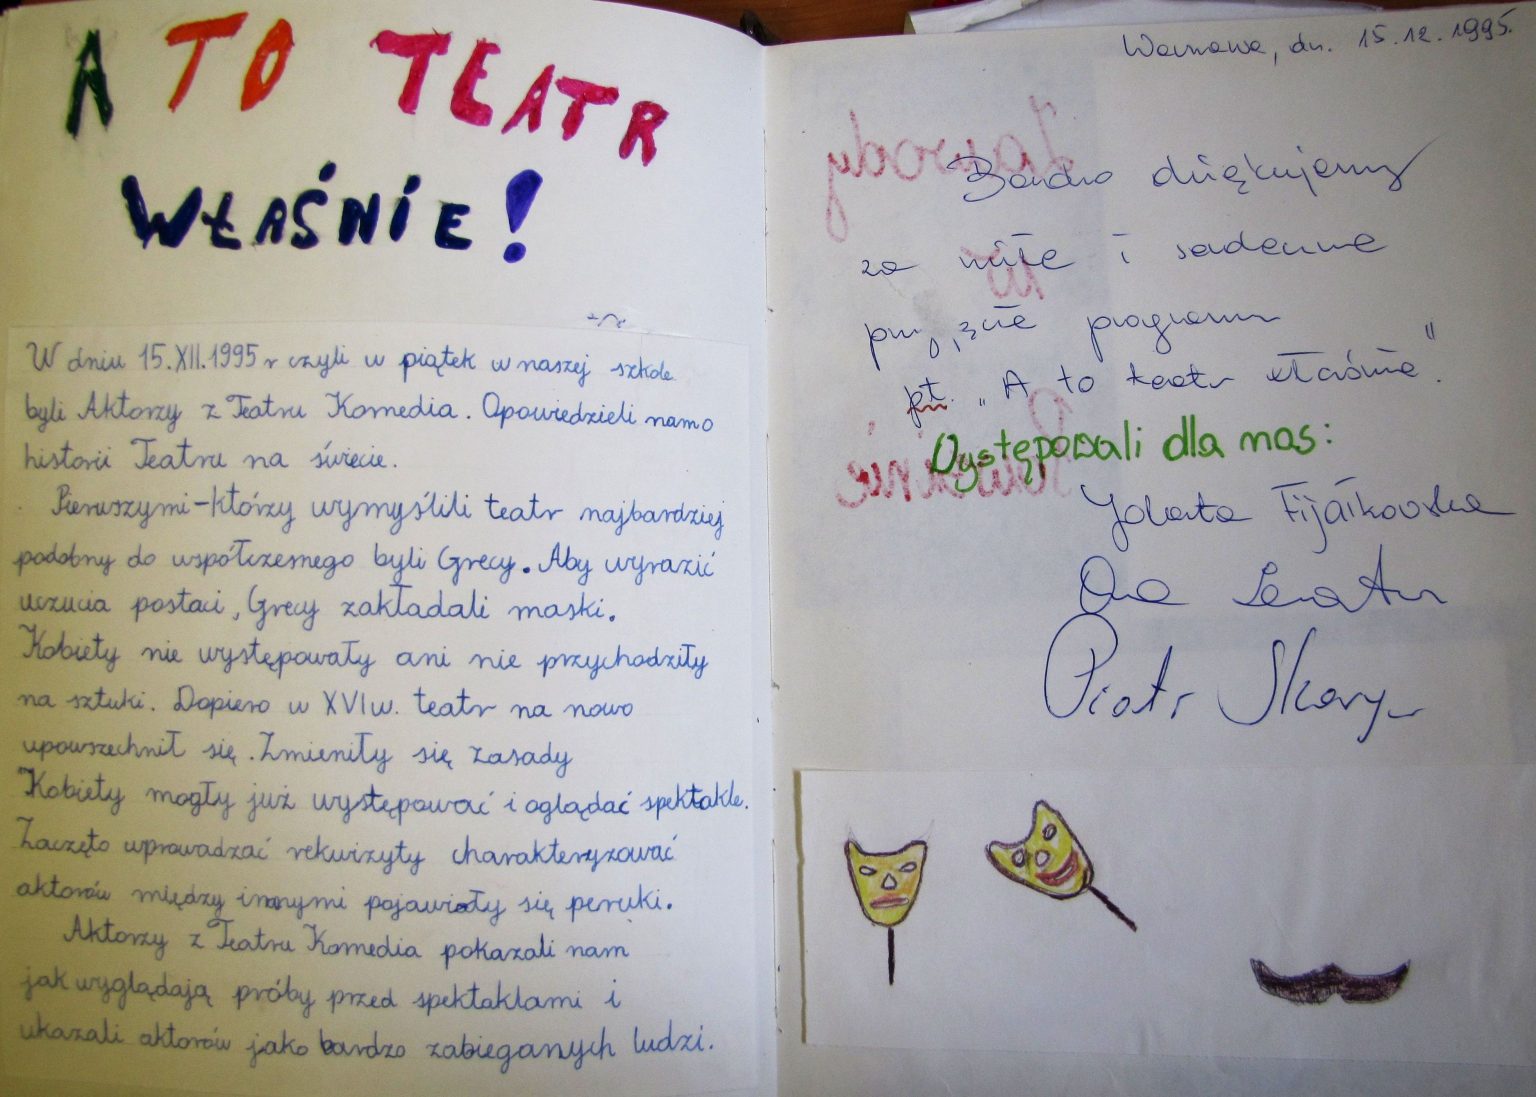 A TO TEATR
WŁAŚNIE!
W dniu 15.XII.1995 r czyli w piątek w naszej szkole
byli Aktorzy z Teatru Komedia. Opowiedzieli nam o
historii Teatru na świecie.
Pierwszymi-którzy wymyślili teatr najbardziej
podobny do współczesnego byli Grecy. Aby wyrazić
uczucia postaci, Grecy zakładali maski.
Kobiety nie występowały ani nie przychodziły
na sztuki. Dopiero w XVI w. teatr na nowo
upowszechnił się. Zmieniły się zasady
Kobiety mogły już występować i oglądać spektakle.
Zaczęto wprowadzać rekwizyty charakteryzować
aktorów między innymi pojawiały się peruki.
Aktorzy z Teatru Komedia pokazali nam
jak wyglądają próby przed spektaklami i
ukazali aktorów jako bardzo zabieganych ludzi.
Warszawa, dn. 15.12.1995.
Bardzo dziękujemy
za miłe i serdeczne
przyjęcie programu
pt. „A to teatr właśnie”.
Występowali dla nas:
Jolanta Fijałkowska
Piotr
Zawody
to